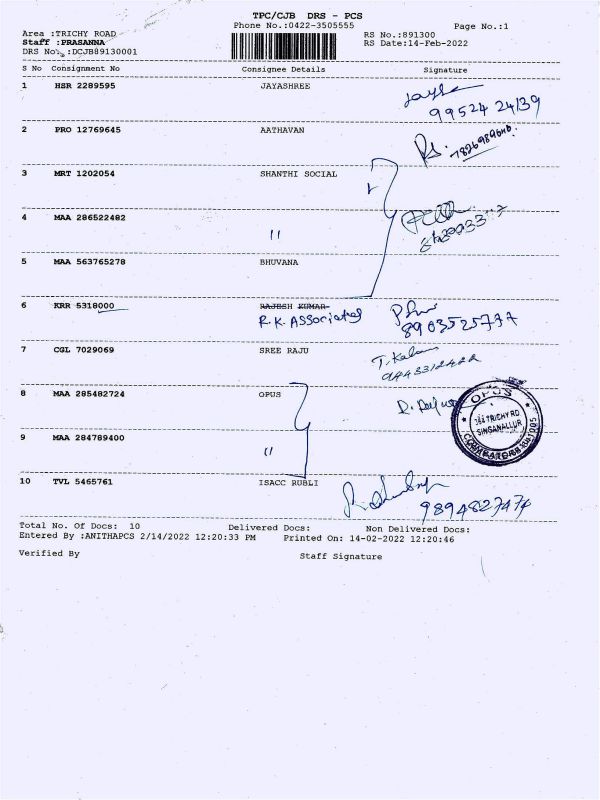 TPC/CJB DRS - PCS
Phone No.:0422-3505555 Page No.:1
Area :TRICHY ROAD RS No.:891300
Staff :PRASANNA RS Date:14-Feb-2022
DRS No.:DCJB89130001
S No Consignment No Consignee Details Signature
1 HSR 2289595 JAYASHREE
99524 24139
2 PRO 12769645 AATHAVAN
3 MRT 1202054 SHANTHI SOCIAL
4 MAA 286522482 "
5 MAA 563765278 BHUVANA
6 KRR 5318000 RAJESH KUMAR
R.K. Associates 8903525737
7 CGL 7029069 SREE RAJU
8 MAA 285482724 OPUS
OPUS
TRICHY RD
SINGANALLUR
9 MAA 284789400 "
10 TVL 5465761 ISACC RUBLI
9894827474
Total No. Of Docs: 10 Delivered Docs: Non Delivered Docs:
Entered By :ANITHAPCS 2/14/2022 12:20:33 PM Printed On: 14-02-2022 12:20:46
Verified By Staff Signature